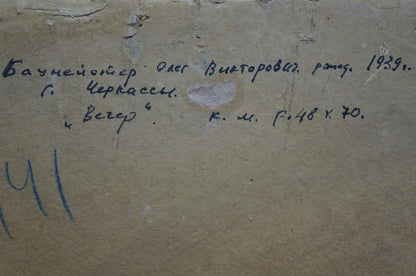 Баумейстер Олег Викторович. рожд. 1939г.
г. Черкассы.
„Вечер". к. м. р. 48 х 70.
141